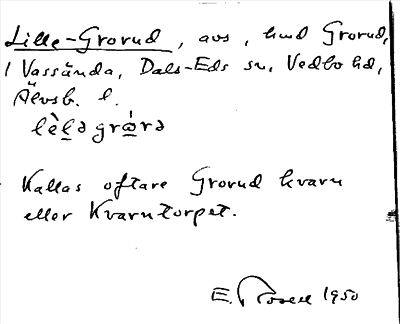 Lille-Grorud, avs, hmd Grorud,
i Vassända, Dals-Eds sn, Vedbo hd,
Älvsb. l.
lèlə grórə
Kallas oftare Grorud kvarn
eller Kvarntorpet.
E. Rosell 1950